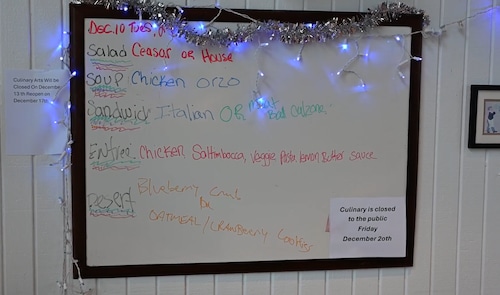 Dec. 10 Tues,
Salad Ceasar OR House
Soup Chicken ORZO
Sandwich Italian OR meat
Ball Calzone
Entrée Chicken Saltimbocca, Veggie Pasta lemon Butter sauce
Desert Blueberry Crumb
OR
OATMEAL/CRANBERRY Cookies
Culinary Arts Will be
Closed On December
13 th Reopen on
December 17th
Culinary is closed
to the public
Friday
December 20th